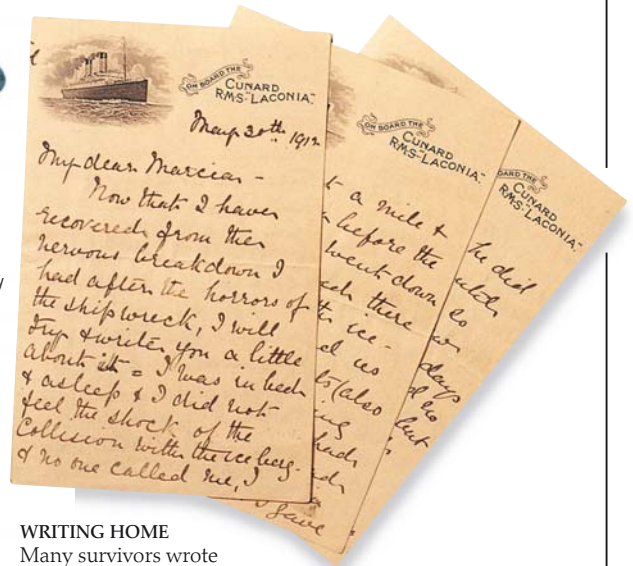 ON BOARD THE
CUNARD
R.M.S. "LACONIA".
May 30th 1912
My dear Marcia -
Now that I have
recovered from the
nervous breakdown I
had after the horrors of
the shipwreck, I will
try & write you a little
about it = I was in bed
& asleep & I did not
feel the shock of the
Collision with the iceberg.
& no one called me, I
ON BOARD THE
CUNARD
R.M.S. "LACONIA".
a mile &
before the
went down
there
ice-
us
(also
had
gave
BOARD THE
CUNARD
R.M.S. "LACONIA".
he did
so
days
no
but
WRITING HOME
Many survivors wrote